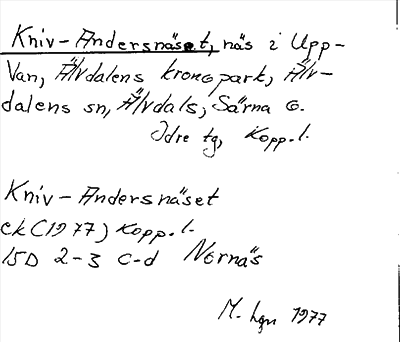 Kniv-Andersnäset, näs i Upp-
Van, Älvdalens kronopark, Älv-
dalens sn, Älvdals, Särna o.
Idre tg, Kopp.l.
Kniv-Andersnäset
ek (1977) Kopp.l.
15D 2-3 c-d Nornäs
M. hgn 1977